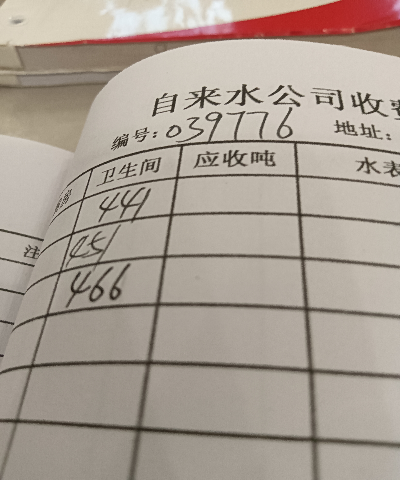 自来水公司收
编号:039776 地址:
卫生间 应收吨 水表
441
451
466
注